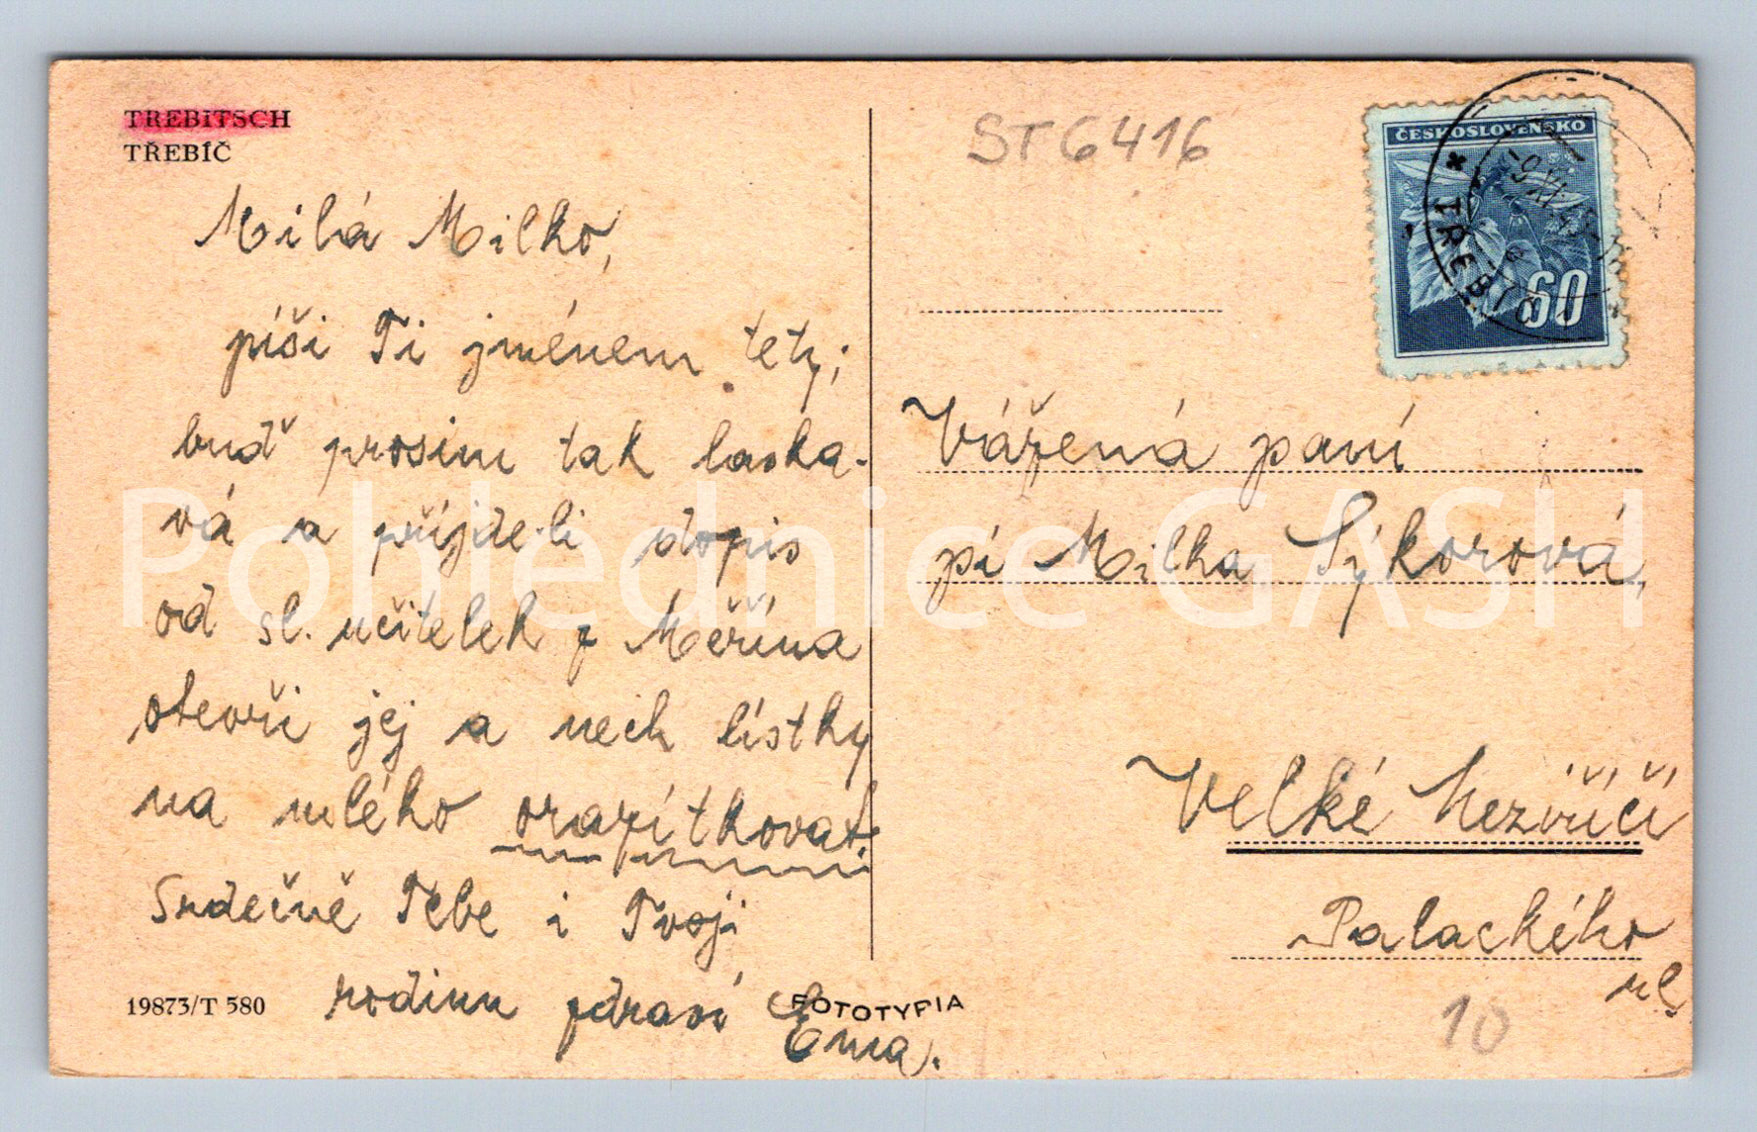 TREBITSCH
TŘEBÍČ
Milá Milko,
píši Ti jménem tety;
buď prosím tak laska-
vá a přijde-li dopis
od sl. učitelek z Měřína
otevři jej a nech lístky
na mléko orazítkovat.
Srdečně Tebe i Tvoji
rodinu zdraví Ema.
19873/T 580
FOTOTYPIA
ST6416
ČESKOSLOVENSKO
60
TŘEBÍČ
Vážená paní
pí Milka Sýkorová,
Velké Meziříčí
Palackého
ul.
10
Pohlednice GASH